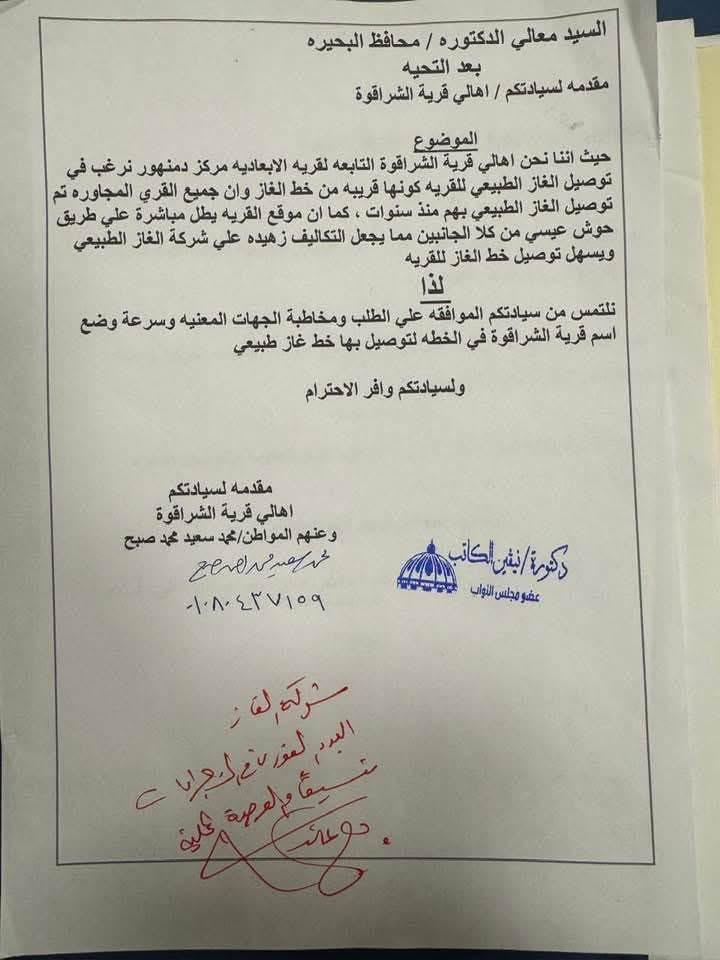 السيد معالي الدكتوره / محافظ البحيره
بعد التحيه
مقدمه لسيادتكم / اهالي قرية الشراقوة
الموضوع
حيث اننا نحن اهالي قرية الشراقوة التابعه لقريه الابعاديه مركز دمنهور نرغب في
توصيل الغاز الطبيعي للقريه كونها قريبه من خط الغاز وان جميع القري المجاوره تم
توصيل الغاز الطبيعي بهم منذ سنوات ، كما ان موقع القريه يطل مباشرة علي طريق
حوش عيسي من كلا الجانبين مما يجعل التكاليف زهيده علي شركة الغاز الطبيعي
ويسهل توصيل خط الغاز للقريه
لذا
نلتمس من سيادتكم الموافقه علي الطلب ومخاطبة الجهات المعنيه وسرعة وضع
اسم قرية الشراقوة في الخطه لتوصيل بها خط غاز طبيعي
ولسيادتكم وافر الاحترام
مقدمه لسيادتكم
اهالي قرية الشراقوة
وعنهم المواطن/محمد سعيد محمد صبح
٠١٠٨٠٤٣٧١٥٩
دكتورة/نيفين الكاتب
عضو مجلس النواب
شركة الغاز
البدء الفوري في الإجراءات
تنسيقاً مع الوحدة المحلية